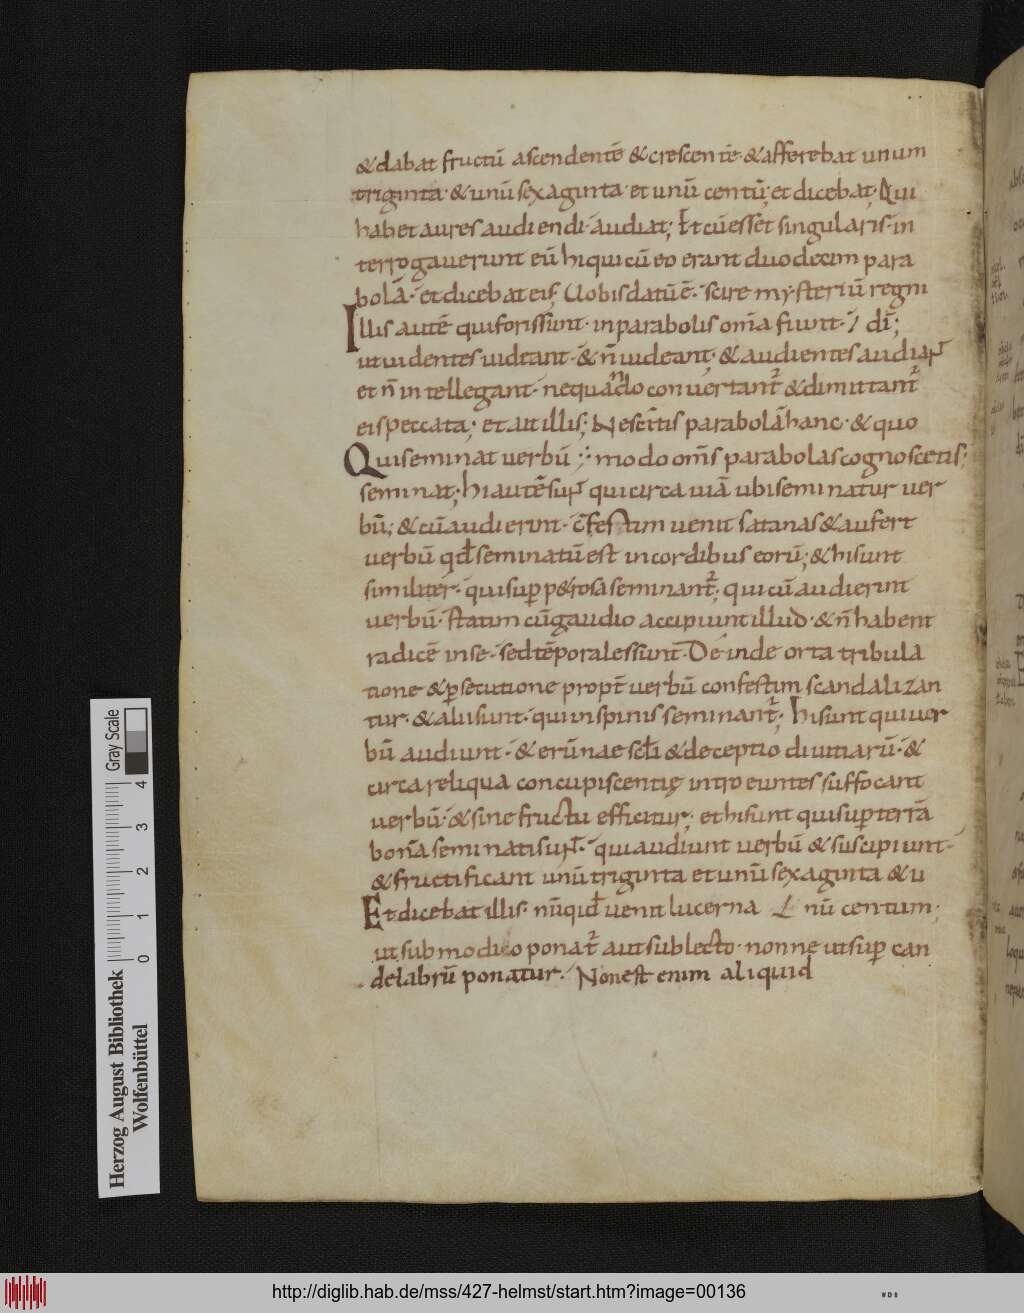 & dabat fructū ascendentē & crescentē· & afferebat unum
triginta· & unū sexaginta· et unū centū; et dicebat· Qui
habet aures audiendi· audiat; Et cū esset singularis· in
terrogauerunt eū hi qui cū eo erant duodecim para
bolā· et dicebat eis; Uobis datū ē· scire mysteriū regni
Illis autē qui foris sunt· in parabolis om̄a fiunt· / dī;
ut uidentes uideant· & n̄ uideant; & audientes audiant
et n̄ intellegant· nequando conuertant̄ & dimittant̄
eis peccata; et ait illis; Nescitis parabolā hanc· & quo
Qui seminat uerbū ; modo om̄s parabolas cognoscetis;
seminat; hi autē sunt qui circa uiā ubi seminatur uer
bū; & cū audierint· cf̄estim uenit satanas & aufert
uerbū qđ seminatū est in cordibus eorū; & hi sunt
similiter· qui sup p&rosa seminant̄; qui cū audierint
uerbū· statim cū gaudio accipiunt illud· & n̄ habent
radicē in se· sed tēporales sunt· Deinde orta tribula
tione & p̱secutione propt̄ uerbū confestim scandalizan
tur· & alii sunt· qui in spinis seminant̄; hi sunt qui uer
bū audiunt· & erūnae scłi & deceptio diuitiarū· &
circa reliqua concupiscentię introeuntes suffocant
uerbū· & sine fructu efficitur; et hi sunt qui sup terrā
bonā seminati sunt· qui audiunt uerbū & suscipiunt·
& fructificant unū triginta et unū sexaginta & u
Et dicebat illis· nūqid uenit lucerna L nū centum·
ut sub modio ponat̄ aut sub lecto· nonne ut sup can
delabrū ponatur· Non est enim aliquid
Herzog August Bibliothek
Wolfenbüttel
Gray Scale
0 1 2 3 4
http://diglib.hab.de/mss/427-helmst/start.htm?image=00136